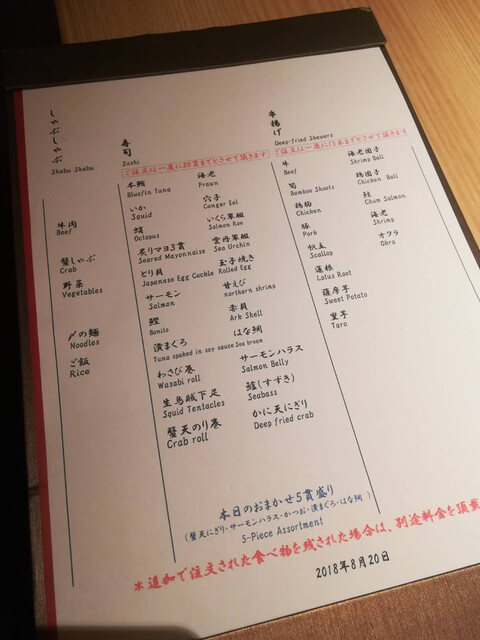 しゃぶしゃぶ
Shabu Shabu
牛肉
Beef
蟹しゃぶ
Crab
野菜
Vegetables
〆の麺
Noodles
ご飯
Rice
寿司
Sushi
ご注文は一度に20貫までとさせて頂きます
本鮪
Bluefin Tuna
海老
Prawn
いか
Squid
穴子
Conger Eel
蛸
Octosus
いくら軍艦
Salmon Roe
炙りマヨ3貫
Seared Mayonnaise
雲丹軍艦
Sea Urchin
とり貝
Japanese Egg Cockle
玉子焼き
Rolled Egg
サーモン
Salmon
甘えび
northern shrimp
鰹
Bonito
赤貝
Ark Shell
漬まぐろ
Tuna soaked in soy sauce
はな鯛
Sea bream
わさび巻
Wasabi roll
サーモンハラス
Salmon Belly
生烏賊下足
Squid Tentacles
鱸(すずき)
Seabass
蟹天のり巻
Crab roll
かに天にぎり
Deep fried crab
串揚げ
Deep-fried Skewers
ご注文は一度に15本までとさせて頂きます
牛
Beef
海老団子
Shrimps Ball
筍
Bamboo Shoots
鶏団子
Chicken Ball
鶏胸
Chicken
鮭
Chum Salmon
豚
Pork
海老
Shrimp
帆立
Scallop
オクラ
Okra
蓮根
Lotus Root
薩摩芋
Sweet Potato
里芋
Taro
本日のおまかせ5貫盛り
(蟹天にぎり・サーモンハラス・かつお・漬まぐろ・はな鯛)
5-Piece Assortment
*追加で注文された食べ物を残された場合は、別途料金を頂戴
2018年8月20日